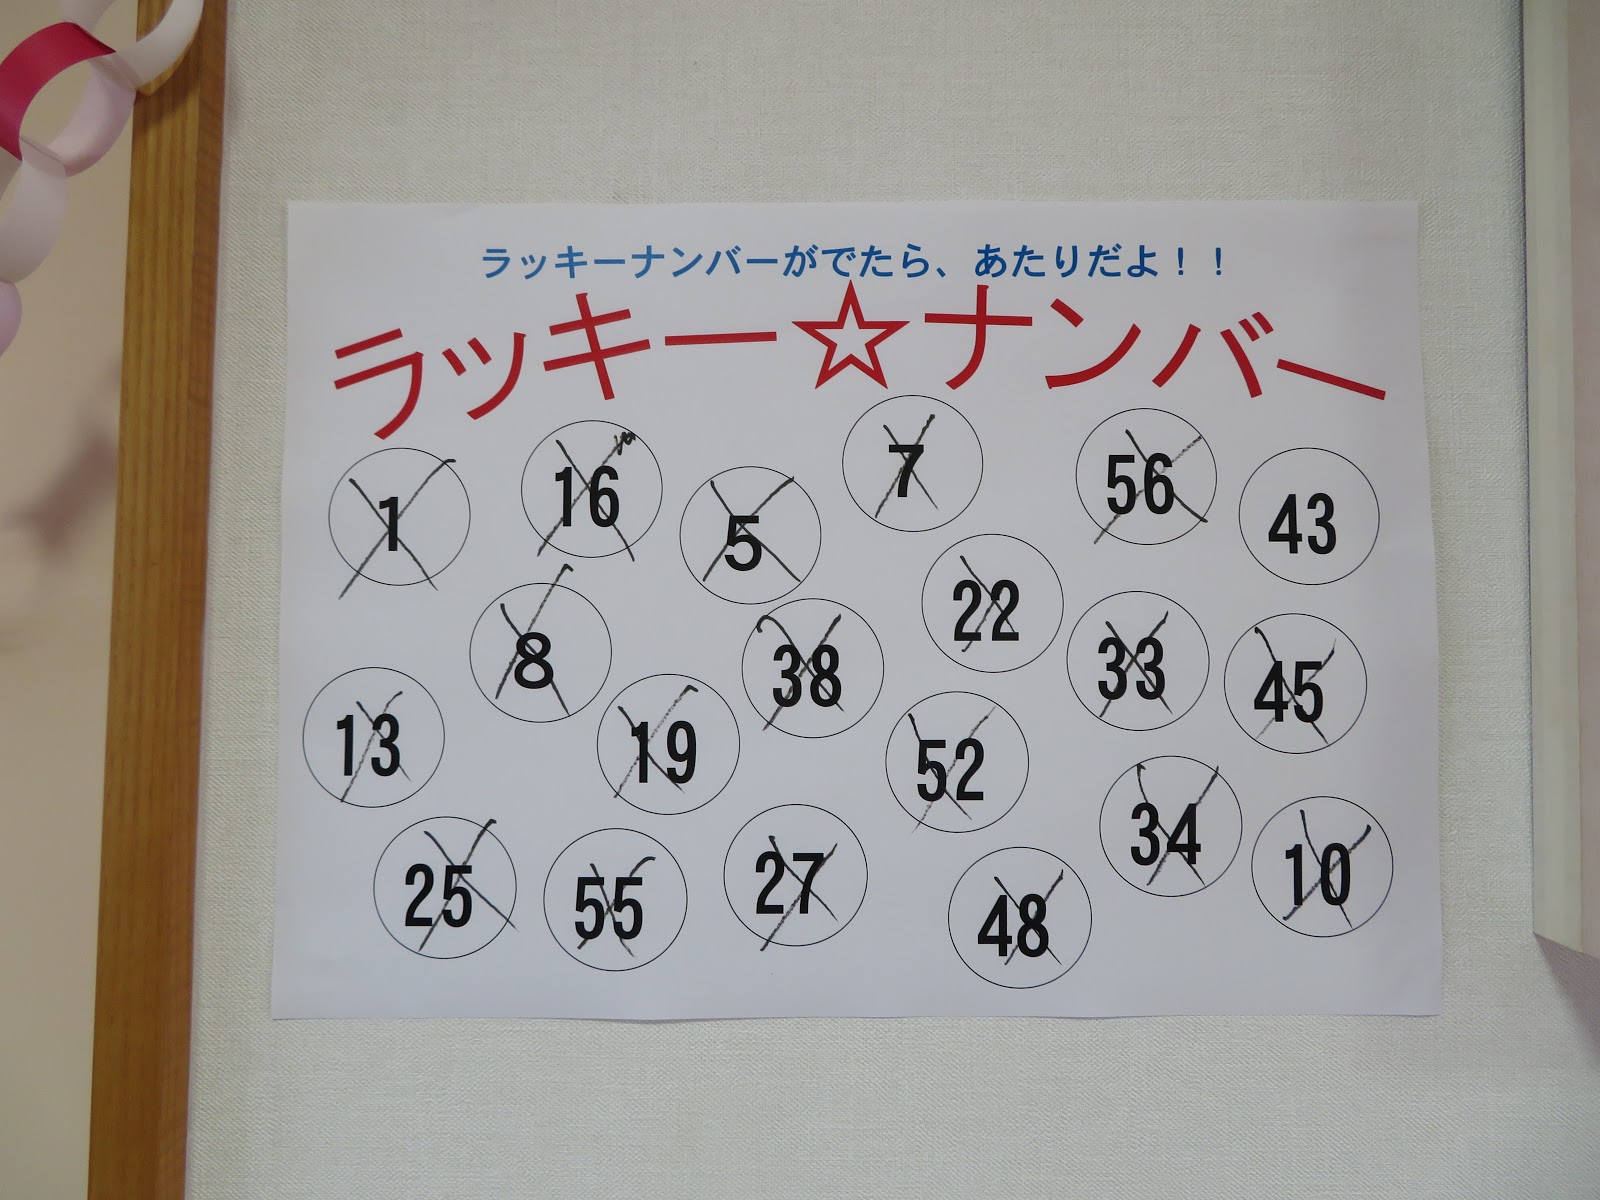 ラッキーナンバーがでたら、あたりだよ！！
ラッキー☆ナンバー
1 16 5 7 56 43
8 38 22 33 45
13 19 52
25 55 27 48 34 10